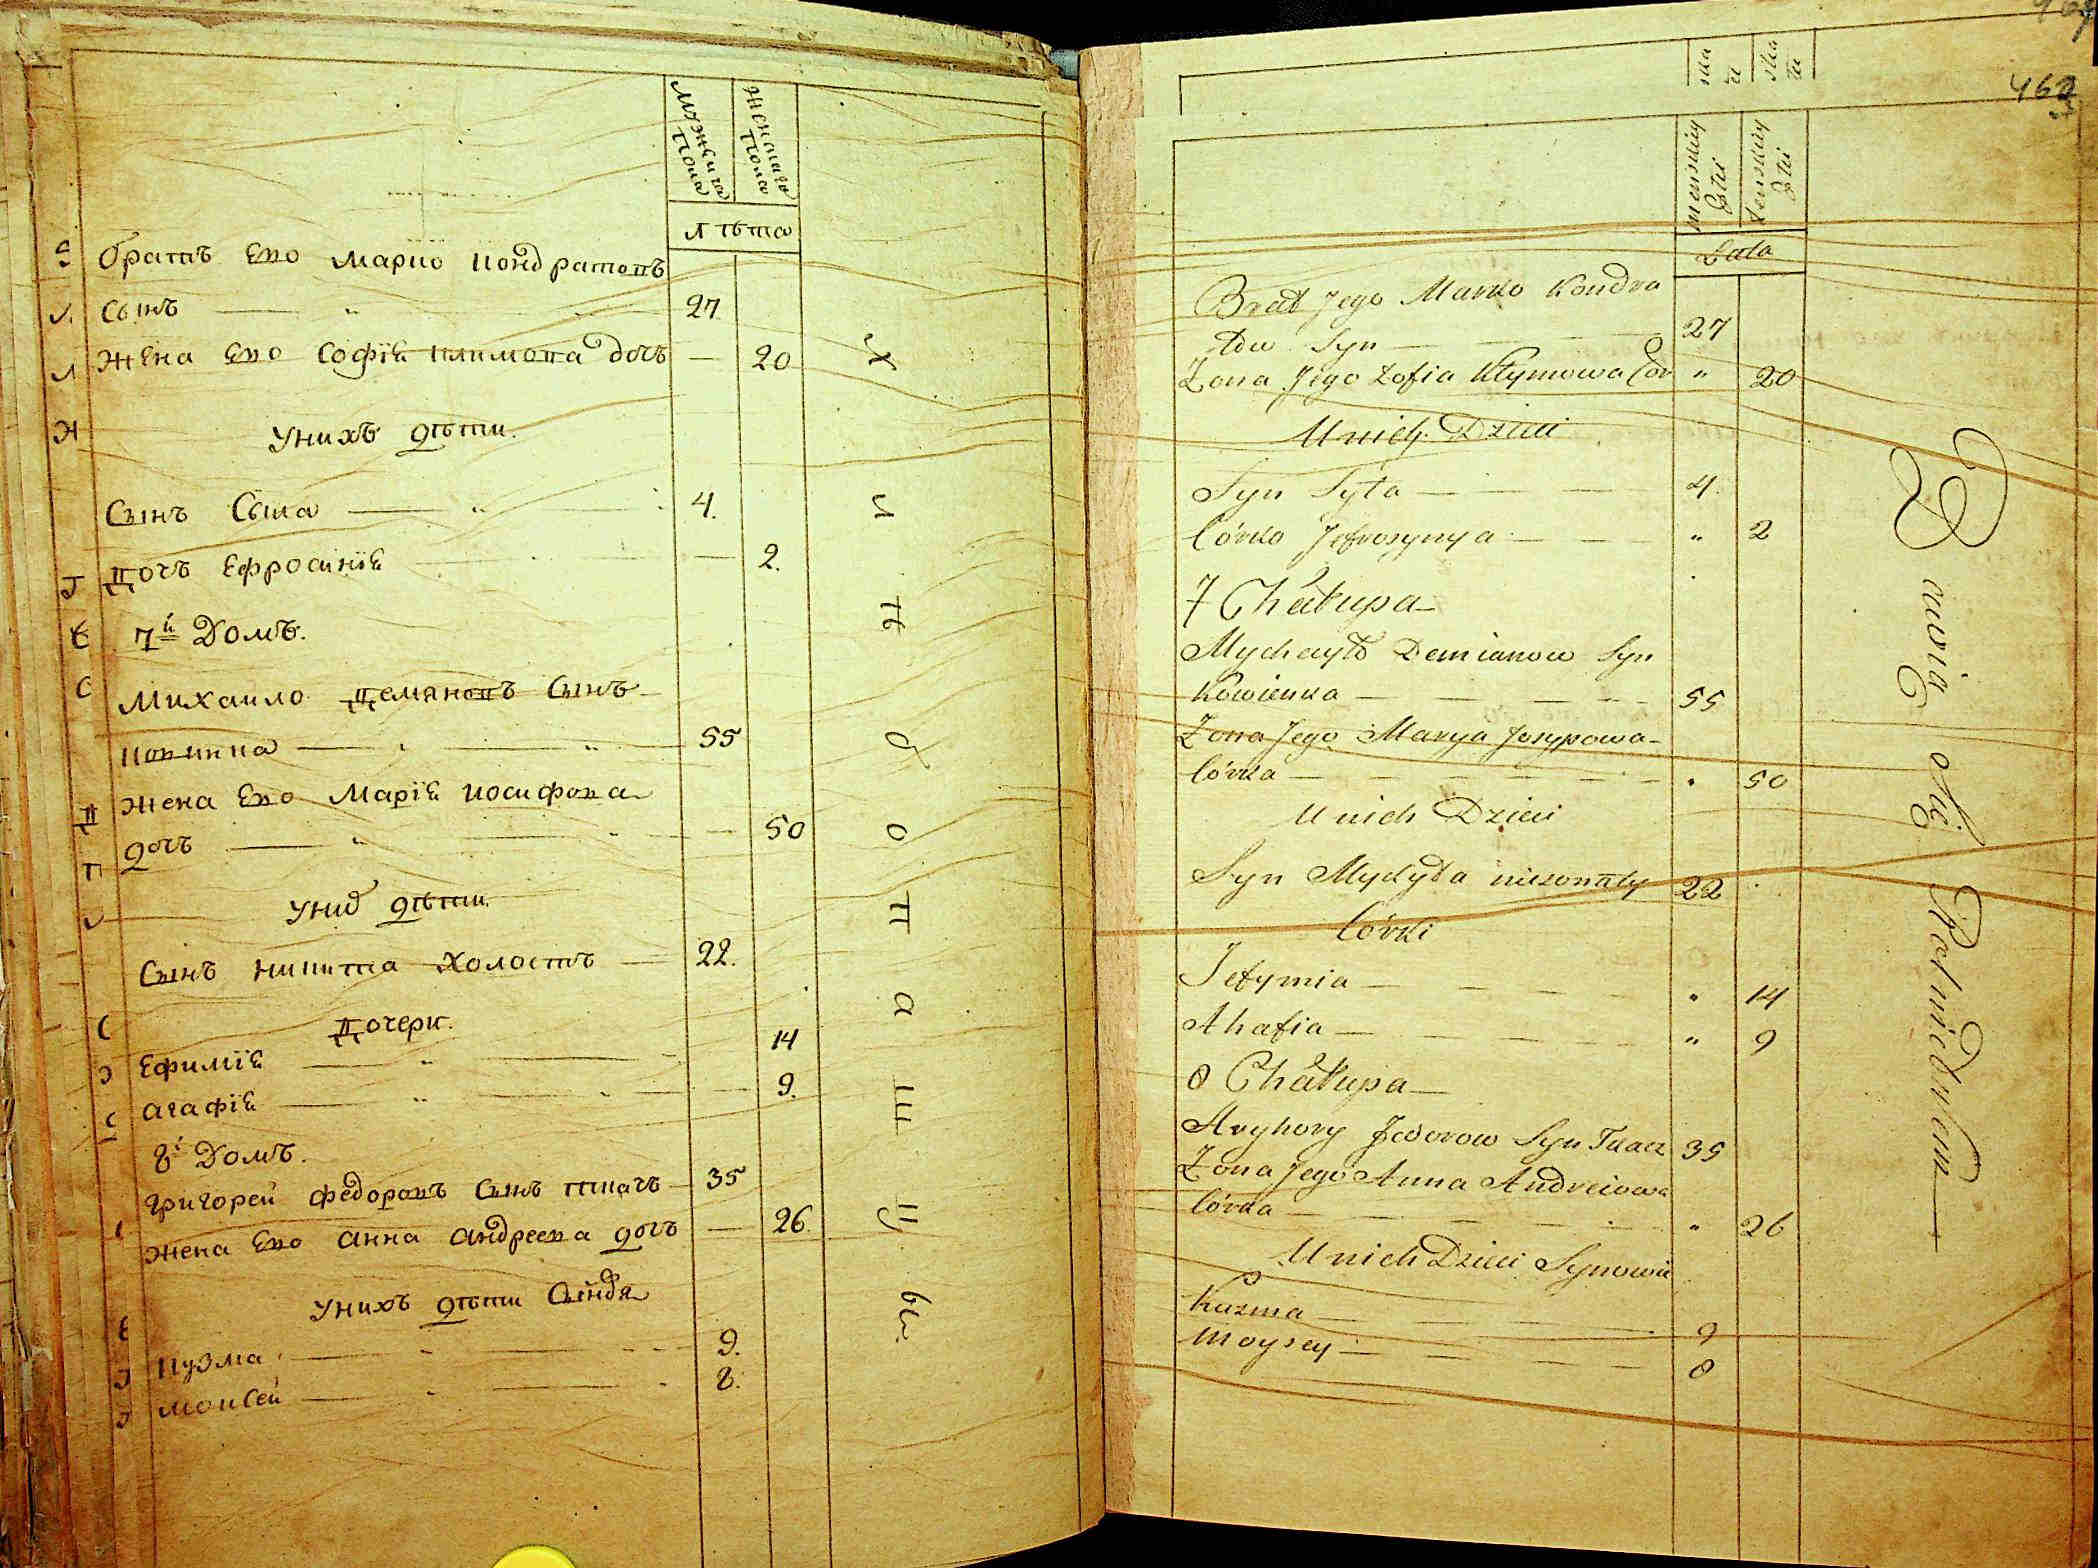 Мужеска
Пола
Женскаго
Пола
Лѣта
братъ Ево Марко Кондратовъ
Сынъ — 27
Жена Ево Софія Климова дочь — 20
Унихъ дѣти.
Сынъ Сыла — 4.
Дочь Ефросинія — 2.
7й Домъ.
Михаило Демяновъ Сынъ
Ковинка — 55
Жена Ево Марія Иосифова
дочь — 50
Уних дѣти.
Сынъ Никита Холостъ — 22.
Дочери.
Ефимія — 14
Агафія — 9.
8й Домъ.
Григорей Федоровъ Сынъ ткачъ 35
Жена Ево Анна Андреева дочь — 26.
Унихъ дѣти Синдя
Кузма — 9.
Моисей — 8.
Хлѣбопашцы.
462
męnskiey
Płci
żenskiey
Płci
Lata
Brat Jego Marko Kondra
tow Syn — 27
Żona Jego Zofia Klymowa Cór „ 20
U nich Dzieci
Syn Syła — 4.
Córka Jefrosynya — „ 2
7 Chałupa
Mychayło Demianow Syn
Kowienka — 55
Żona Jego Marya Josypowa
Córka — „ 50
U nich Dzieci
Syn Mykyta nieżonaty 22
Córki
Jefymia — „ 14
Ahafia — „ 9
8 Chałupa
Hryhory Fedorow Syn Tkacz 35
Żona Jego Anna Andreiowa
Córka — „ 26
U nich Dzieci Synowie
Kuzma — 9
Moysey — 8
Bawią się Rolnictwem